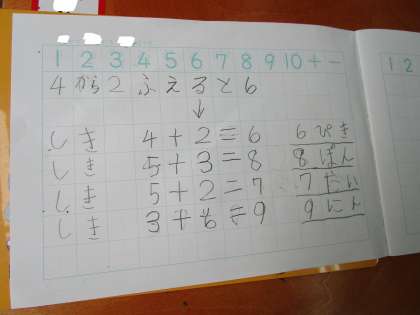 1 2 3 4 5 6 7 8 9 10 + −
4から2ふえると6
↓
しき 4+2=6 6ぴき
しき 5+3=8 8ぽん
しき 5+2=7 7だい
しき 3+6=9 9にん
1 2